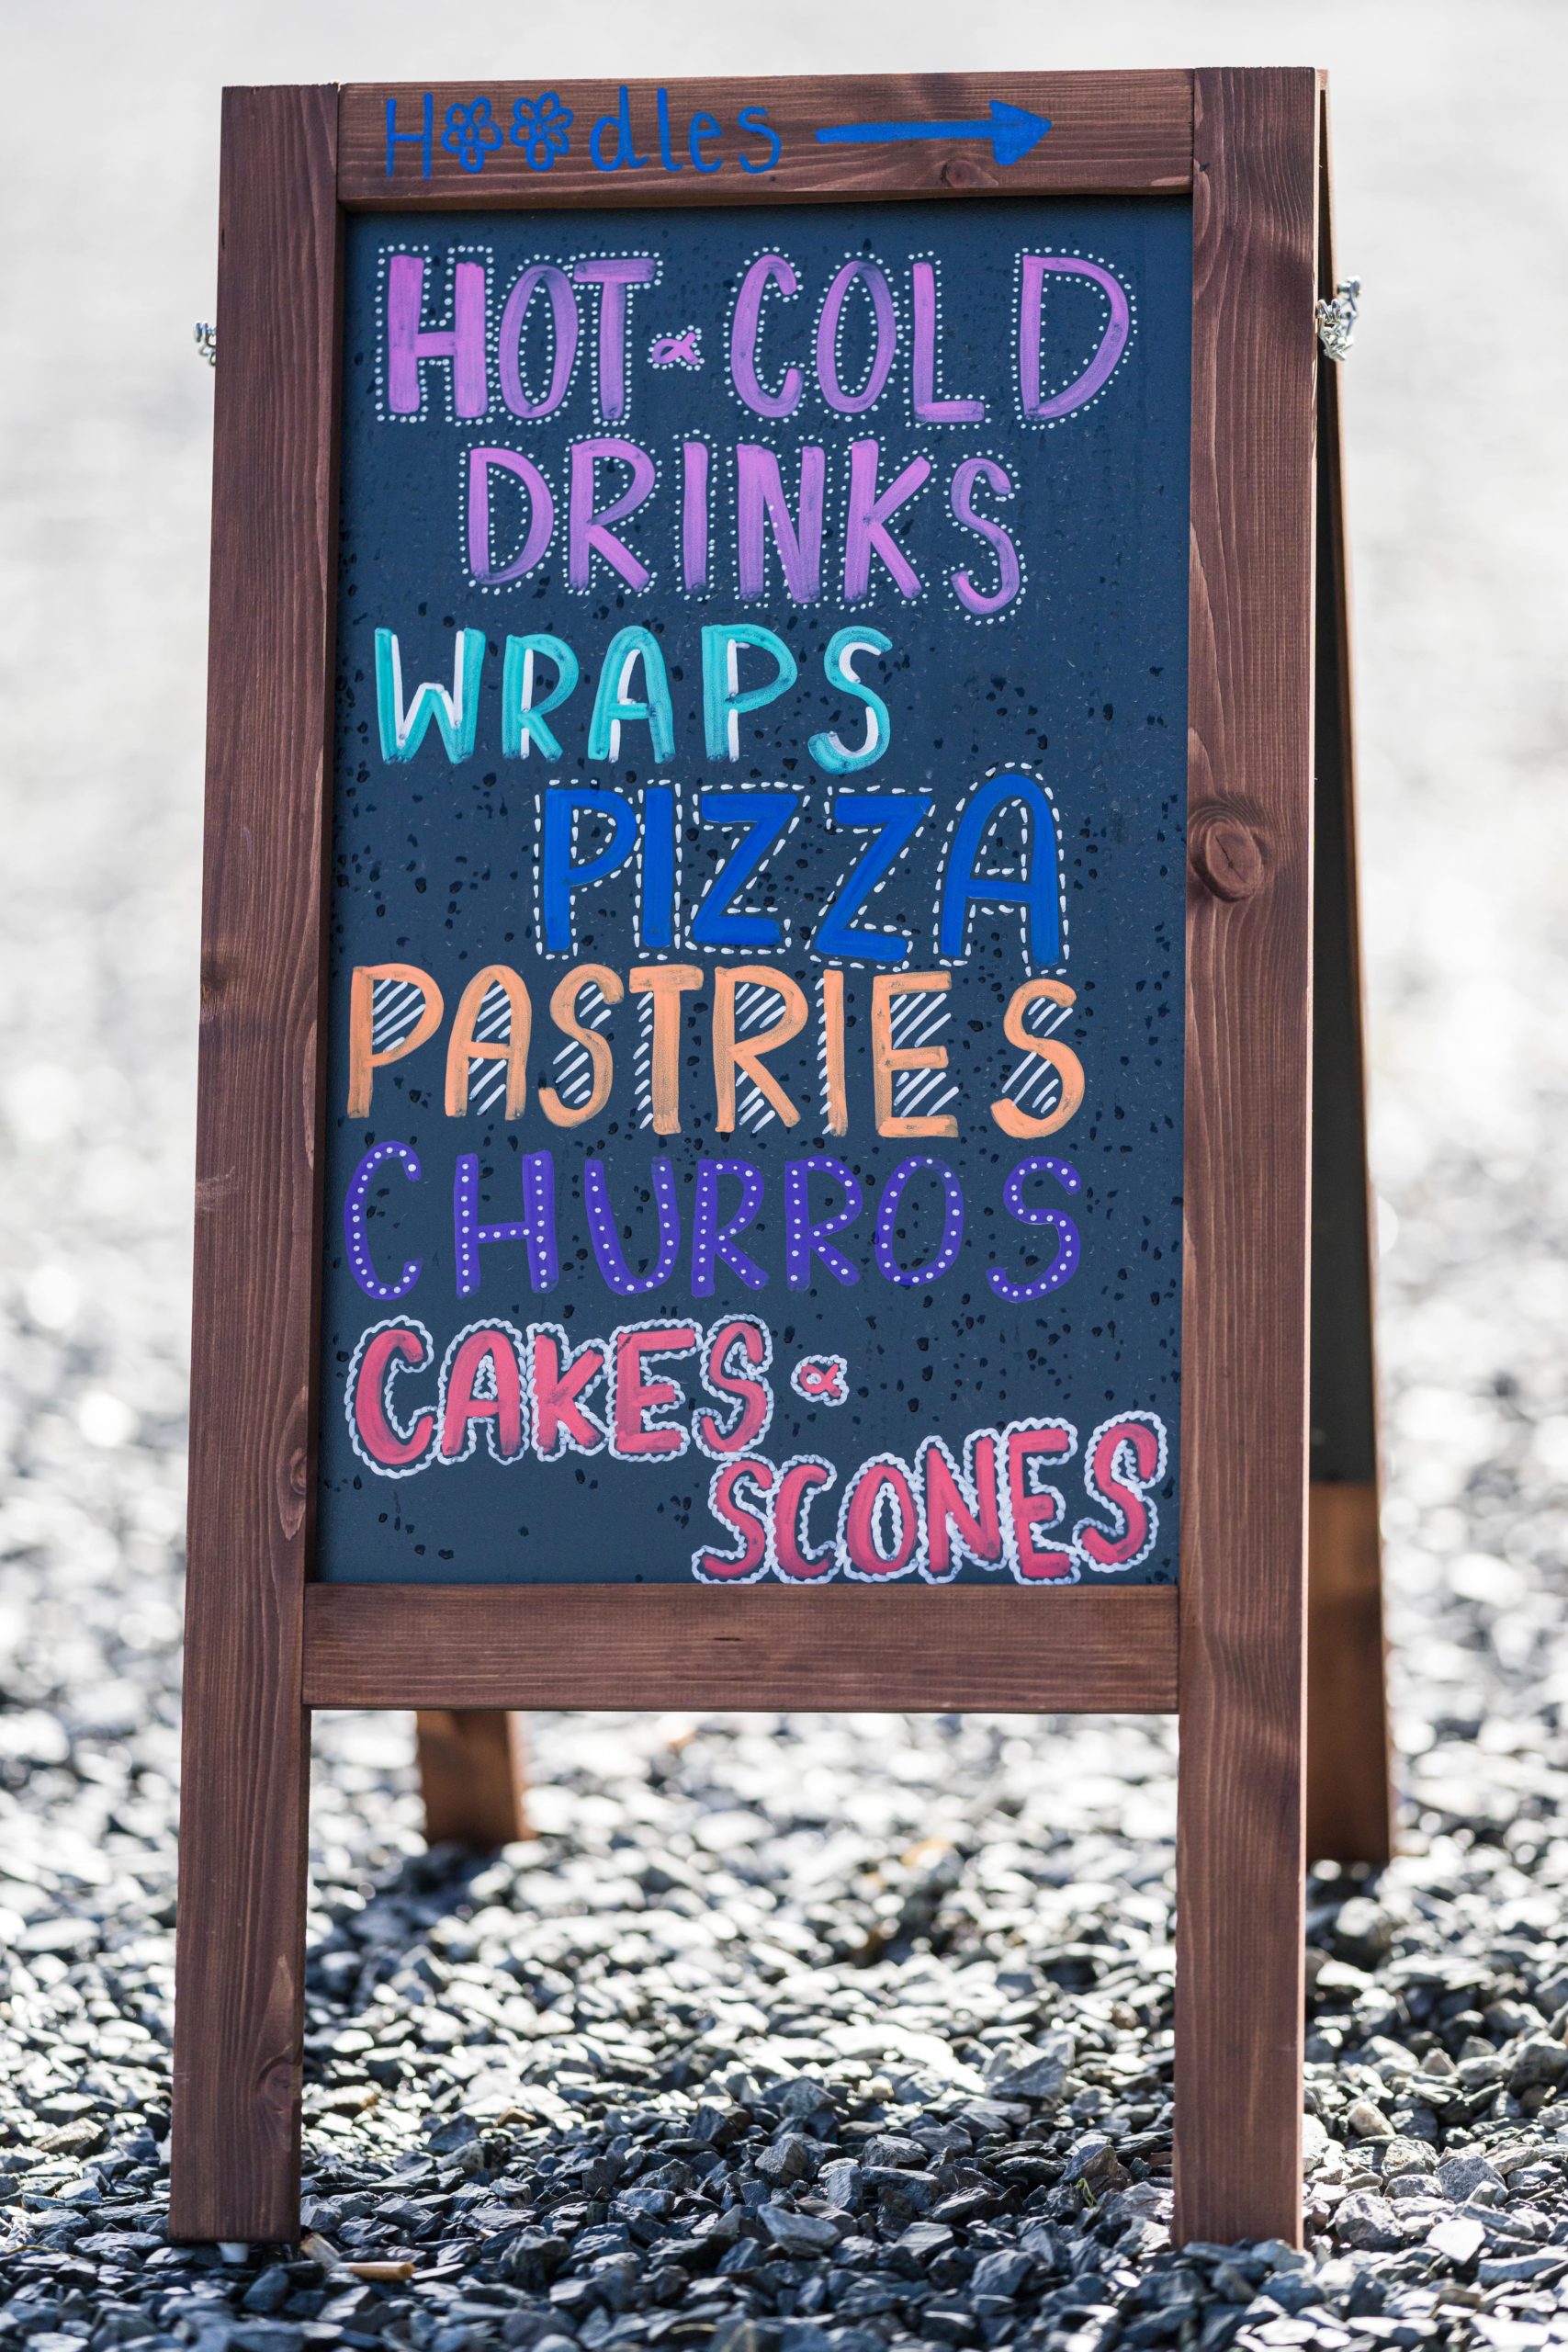 Hoodles
HOT & COLD
DRINKS
WRAPS
PIZZA
PASTRIES
CHURROS
CAKES &
SCONES